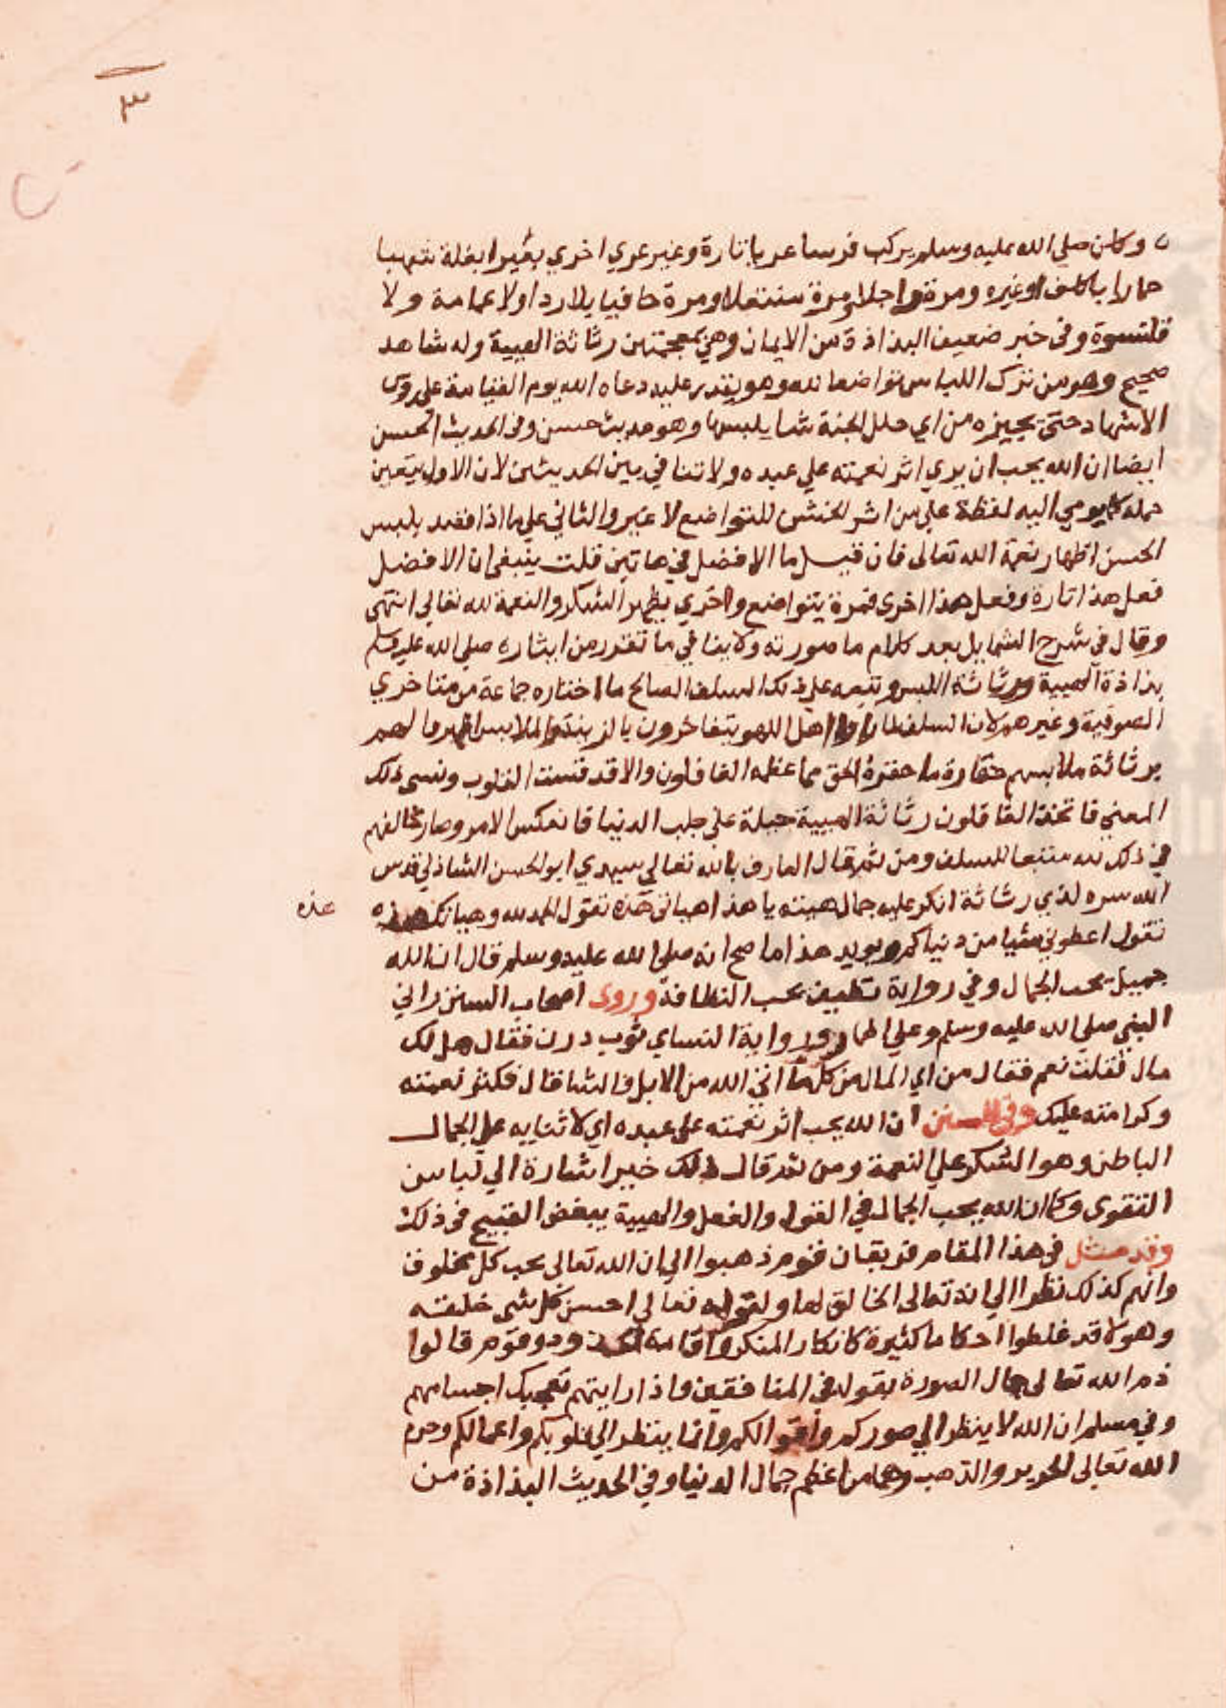 ٣
وكان صلى الله عليه وسلم يركب فرسا عريا تارة وغير عري اخري بعيرا بغلة شهبا
حمارا باكاف او غيره ومرة راجلا ومرة منتعلا ومرة حافيا بلا رداولا عمامة ولا
قلنسوة وفى خبر ضعيف البذاذة من الايمان وهي بمعجمتين رثاثة الهيية وله شاهد
صحيح وهو من ترك اللباس تواضعا لله وهو يقدر عليه دعاه الله يوم القيامة على روس
الاشهاد حتى يخيره من اي حلل الجنة شا يلبسها وهو حديث حسن وفى الحديث الحسن
ايضا ان الله يحب ان يري اثر نعمته علي عبده ولا تنافي بين الحديثين لان الاول يتعين
حمله كما يومي اليه لفظة علي من اثر الخشن للتواضع لا غير والثاني على ما اذا قصد بلبس
الحسن اظهار نعمة الله تعالى فان قيل ما الافضل في هاتين قلت ينبغي ان الافضل
فعل هذا تارة وفعل هذا اخرى فمرة يتواضع واخري يظهر الشكر والنعمة لله تعالي انتهى
وقال فى شرح الشمايل بعد كلام ما صورته ولا ينافي ما تقرر من ايثاره صلى الله عليه وسلم
بذاذة الهيية ورثاثة اللبس وتبعه على ذلك السلف الصالح ما اختاره جماعة من متاخري
الصوفية وغيرهم لان السلف لما راوا اهل اللهو يتفاخرون بالزينة والملابس اظهروا لهم
برثاثة ملابسهم حقارة ما حقره الحق مما عظمه الغافلون والان قد قست القلوب ونسى ذلك
المعنى فاتخذ الغافلون رثاثة الهيية حيلة على طلب الدنيا فانعكس الامر وصار مخالفهم
في ذلك لله متبعا للسلف ومن ثم قال العارف بالله تعالي سيدي ابو الحسن الشاذلي قدس
الله سره لذي رثاثة انكر عليه جمال هيئته يا هذا هيئاتى هذه تقول الحمد لله وهيأتك هذه
هذه
تقول اعطوني شيا من دنياكم ويويد هذا ما صح انه صلى الله عليه وسلم قال ان الله
جميل يحب الجمال وفي رواية نظيف يحب النظافة وروى اصحاب السنن راني
النبي صلى الله عليه وسلم وعلي اطمار وروابة النساي ثوب درن فقال هل لك
مال فقلت نعم فقال من اي المال من كل ما اتى الله من الابل والشا قال فكثر نعمته
وكرامته عليك وفى السنن ان الله يحب اثر نعمته على عبده اي لاثنايه على الجمال
الباطن وهو الشكر علي النعمة ومن ثم قال ذلك خير اشارة الي لباس
التقوى وكما ان الله يحب الجمال في القول والفعل والهيية يبغض القبيح فى ذلك
وقد ضل فى هذا المقام فريقان قوم ذهبوا الى ان الله تعالى يحب كل مخلوق
وانهم كذلك نظروا الي انه تعالى الخالق لها ولقوله تعالي احسن كل شى خلقه
وهولا قد غلطوا احكاما كثيرة كانكار المنكر واقامة الحدود وقوم قالوا
ذم الله تعالى جمال الصورة بقوله فى المنافقين واذا رايتهم تعجبك اجسامهم
وفي مسلم ان الله لا ينظر الي صوركم واموالكم وانما ينظر الى قلوبكم واعمالكم وحرم
الله تعالى الحرير والذهب وهما من اعظم جمال الدنيا وفي الحديث البذاذة من